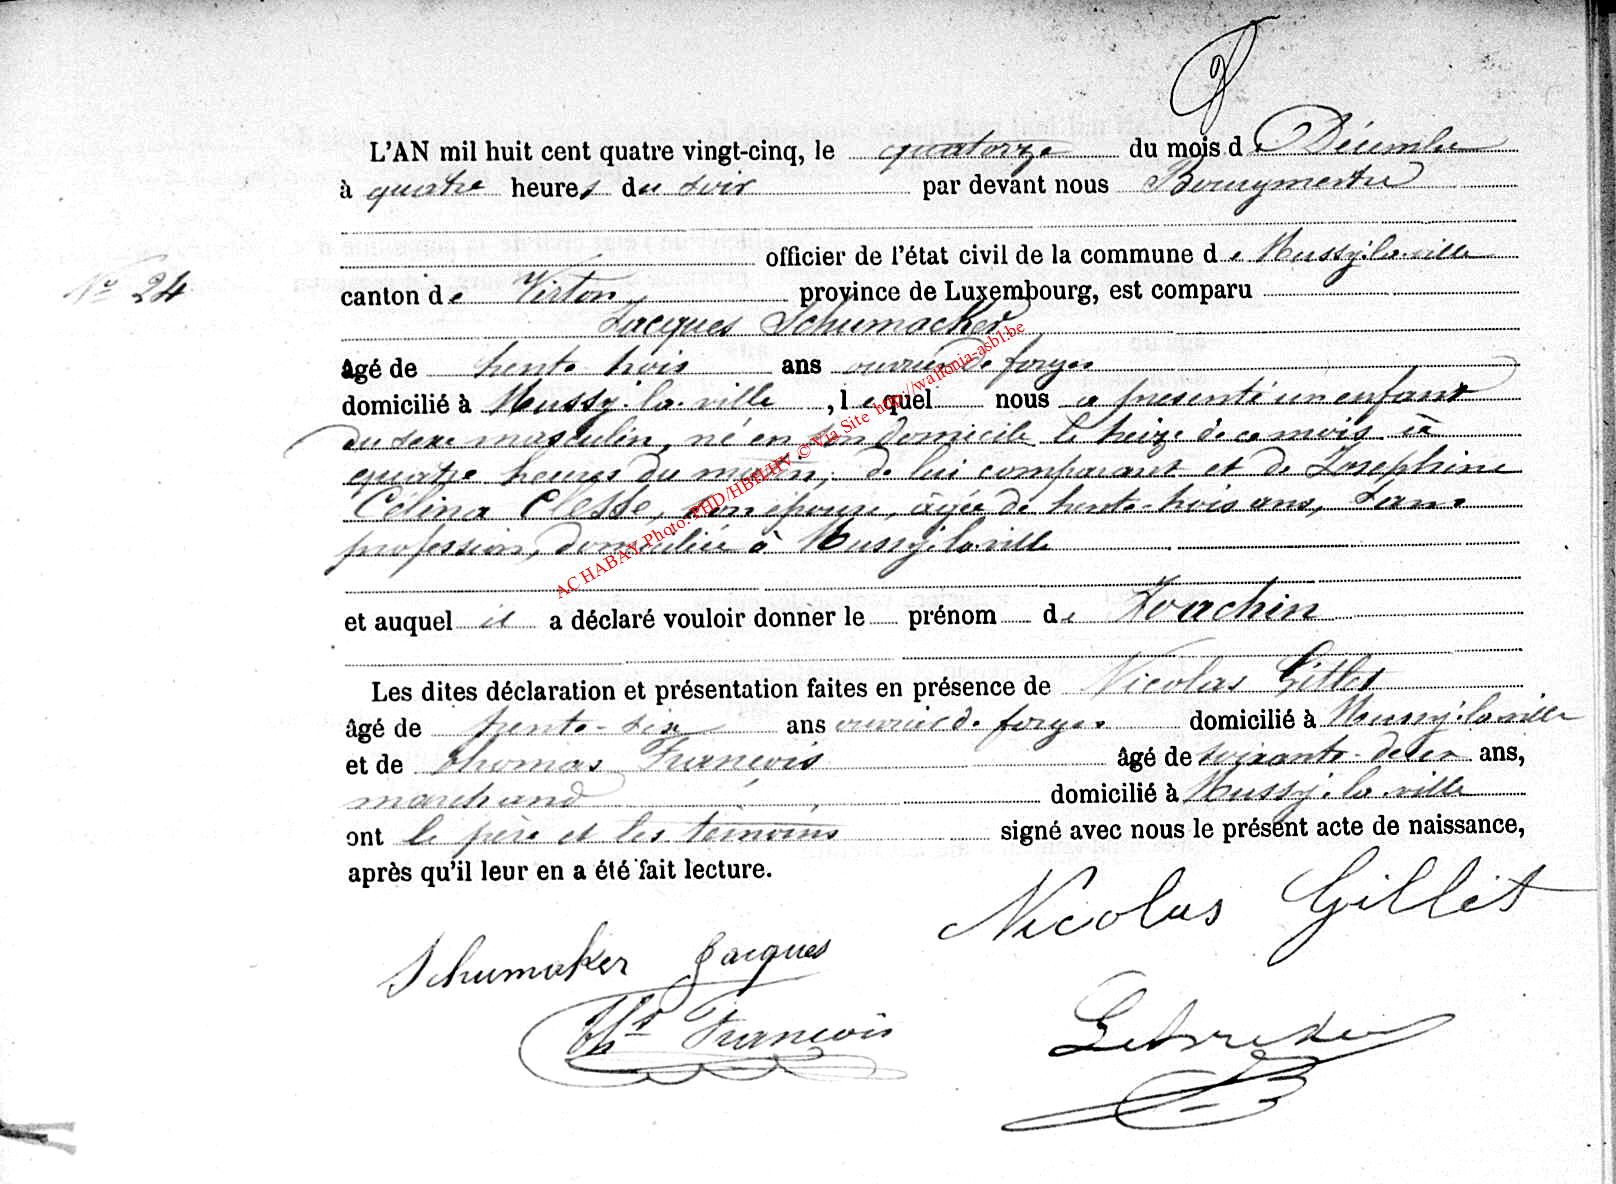 L'AN mil huit cent quatre vingt-cinq, le quatorze du mois de Décembre
à quatre heures du soir par devant nous Bourgmestre
officier de l'état civil de la commune de Mussy-la-ville
N° 24
canton de Virton province de Luxembourg, est comparu
Jacques Schumacker
âgé de trente trois ans ouvrier de forges
domicilié à Mussy-la-ville, lequel nous a présenté un enfant
du sexe masculin, né en son domicile le treize de ce mois à
quatre heures du matin, de lui comparant et de Josephine
Célina Clesse, son épouse, âgée de trente-trois ans, sans
profession, domiciliée à Mussy-la-ville
et auquel il a déclaré vouloir donner le prénom de Joachin
Les dites déclaration et présentation faites en présence de Nicolas Gillet
âgé de trente-six ans ouvrier de forges domicilié à Mussy-la-ville
et de thomas François âgé de soixante-deux ans,
marchand domicilié à Mussy-la-ville
ont le père et les témoins signé avec nous le présent acte de naissance,
après qu'il leur en a été fait lecture.
Nicolas Gillet
Schumaker Jacques
Ths François
AC HABAY Photo: PHD/HBH/HV © Via Site http://wallonia-asbl.be